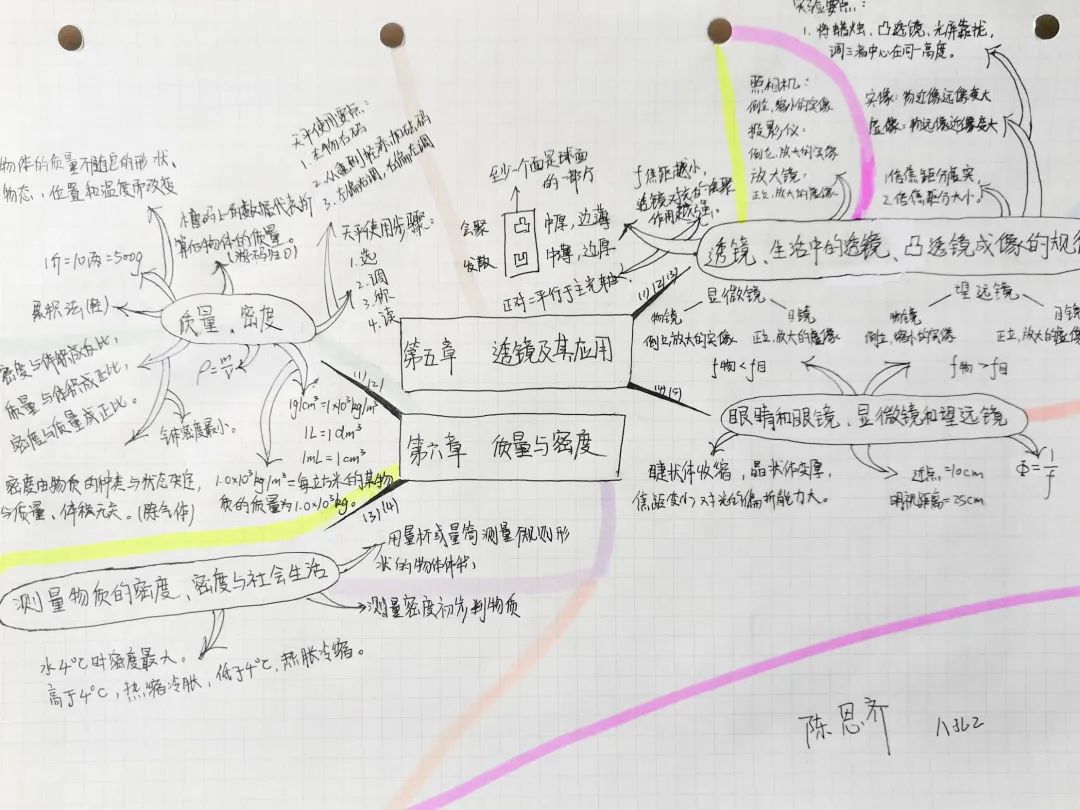 实验要点:
1. 将蜡烛、凸透镜、光屏靠拢,
调三者中心在同一高度。
照相机:
倒立,缩小的实像
投影仪:
倒立,放大的实像
放大镜:
正立,放大的虚像
实像:物近像远像变大
虚像:物远像近像变大
1倍焦距分虚实,
2倍焦距分大小。
透镜、生活中的透镜、凸透镜成像的规
f焦距越小,
至少一个面是球面
的一部分
会聚
凸
中厚,边薄
发散
凹
中薄,边厚
正对:平行于主光轴
(1)(2)(3)
天平使用要点:
1. 左物右码
3. 左偏右调,右偏左调
天平使用步骤:
1. 选
2. 调
3. 称
4. 读
物体的质量不随它的形状、
物态、位置和温度而改变
1斤=10两=500g
累积法(测)
质量、密度
ρ=m/V
质量与体积成正比,
密度与质量成正比。
气体密度最小。
1g/cm³=1×10³kg/m³
1L=1dm³
1mL=1cm³
(1)(2)
第五章 透镜及其应用
第六章 质量与密度
显微镜
物镜
目镜
倒立,放大的实像
正立,放大的虚像
f物<f目
望远镜
物镜
目镜
倒立,缩小的实像
正立,放大的虚像
f物>f目
(4)(5)
眼睛和眼镜、显微镜和望远镜
睫状体收缩,晶状体变厚,
焦距变小,对光的偏折能力大。
近点=10cm
明视距离=25cm
Φ=1/f
密度由物质的种类与状态决定,
与质量、体积无关。(除气体)
1.0×10³kg/m³=每立方米的某物
质的质量为1.0×10³kg。
(3)(4)
测量物质的密度、密度与社会生活
用量杯或量筒测量不规则形
状的物体体积
测量密度初步判物质
水4℃时密度最大。
高于4℃,热缩冷胀,低于4℃,热胀冷缩。
陈思齐